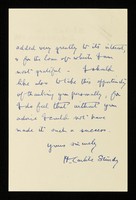 added very greatly to its interest,
& for the loan of which I am
most grateful. I should
like also to take this opportunity
of thanking you personally, for
I do feel that without your
advice I could not have
made it such a success.
Yours sincerely